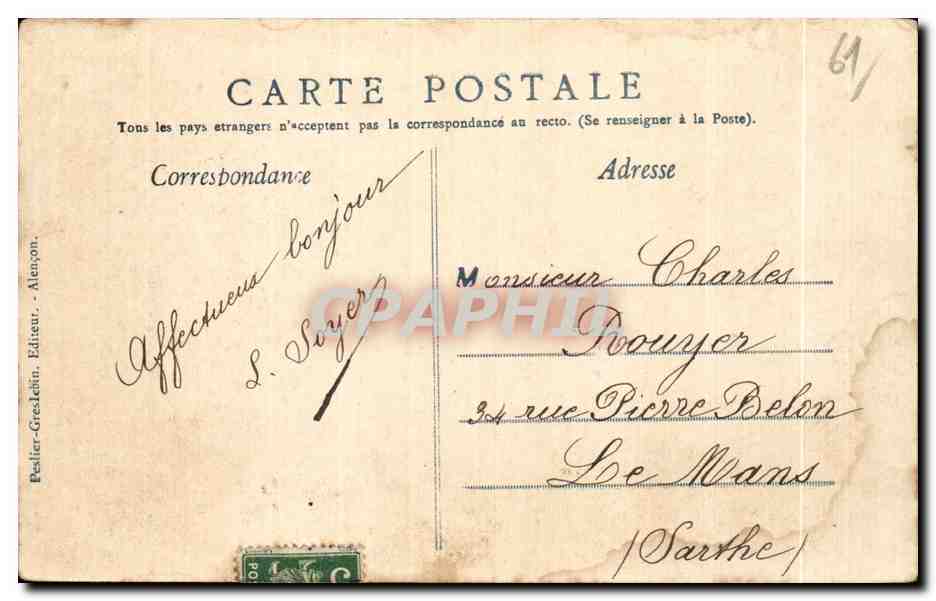 61
CARTE POSTALE
Tous les pays etrangers n'acceptent pas la correspondance au recto. (Se renseigner à la Poste).
Correspondance
Affectueux bonjour
L. Soyer
Adresse
Monsieur Charles
Rouyer
34 rue Pierre Belon
Le Mans
(Sarthe)
Peslier-Greslebin, Editeur. - Alençon.
CPAPHIL
POS